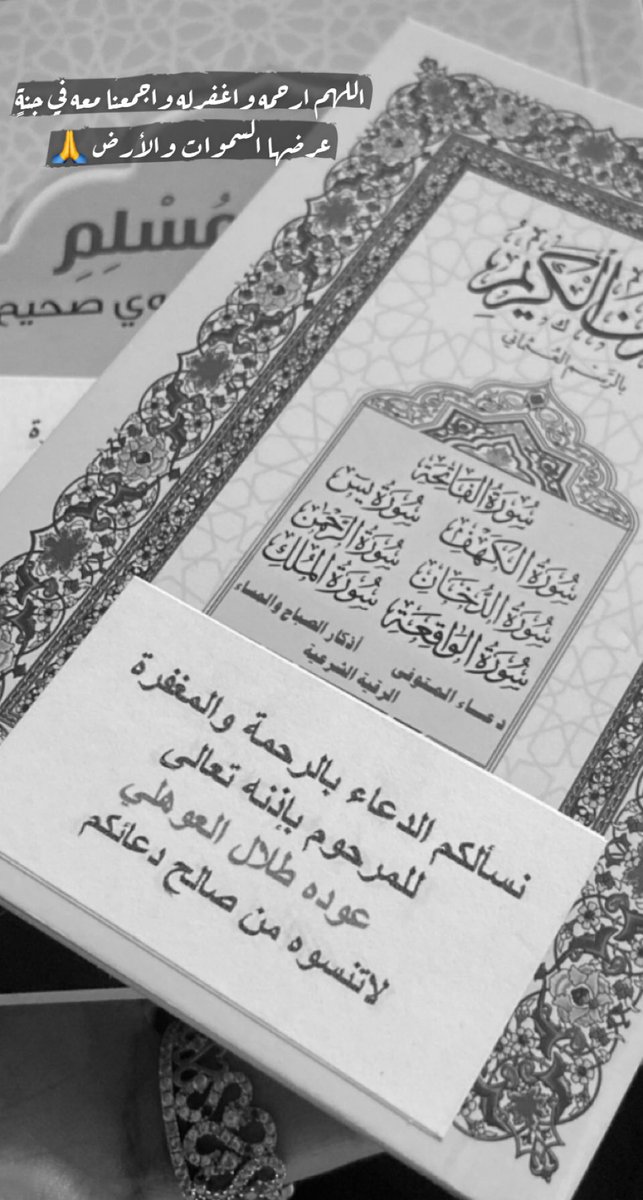 اللهم ارحمه واغفرله واجمعنا معه في جنةٍ
عرضها السموات والأرض 🙏
مُسْلِمِ
صحيح
الكريم
بالرسم العثماني
سُورَةُ الفَاتِحَة
سُورَةُ الكَهْف سُورَةُ يس
سُورَةُ الدُّخَان سُورَةُ الرَّحْمٰن
سُورَةُ الوَاقِعَة سُورَةُ المُلْك
دعاء المتوفى أذكار الصباح والمساء
الرقية الشرعية
نسألكم الدعاء بالرحمة والمغفرة
للمرحوم بإذنه تعالى
عوده طلال العوهلي
لاتنسوه من صالح دعائكم